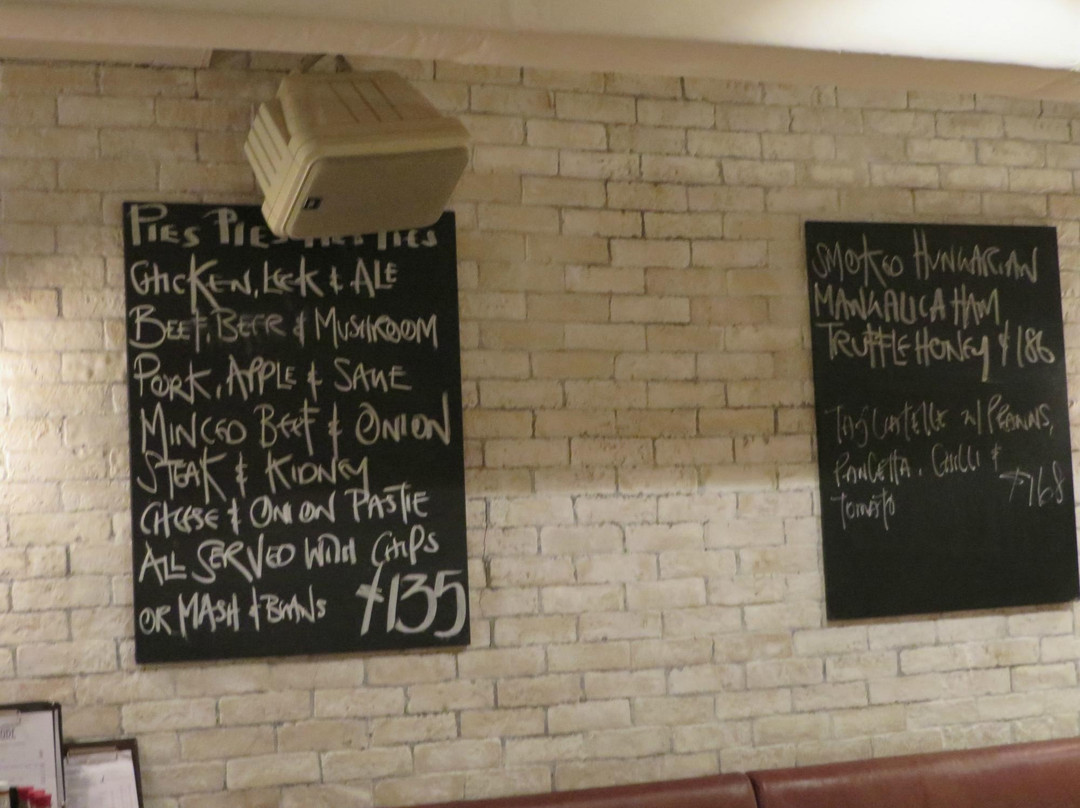 PIES PIES PIES PIES
CHICKEN, LEEK & ALE
BEEF, BEER & MUSHROOM
PORK, APPLE & SAGE
MINCED BEEF & ONION
STEAK & KIDNEY
CHEESE & ONION PASTIE
ALL SERVED WITH CHIPS
OR MASH & BEANS $135
SMOKED HUNGARIAN
MANGALICA HAM
TRUFFLE HONEY $186
TAGLIATELLE W/ PRAWNS,
PANCETTA, CHILLI &
TOMATO $168